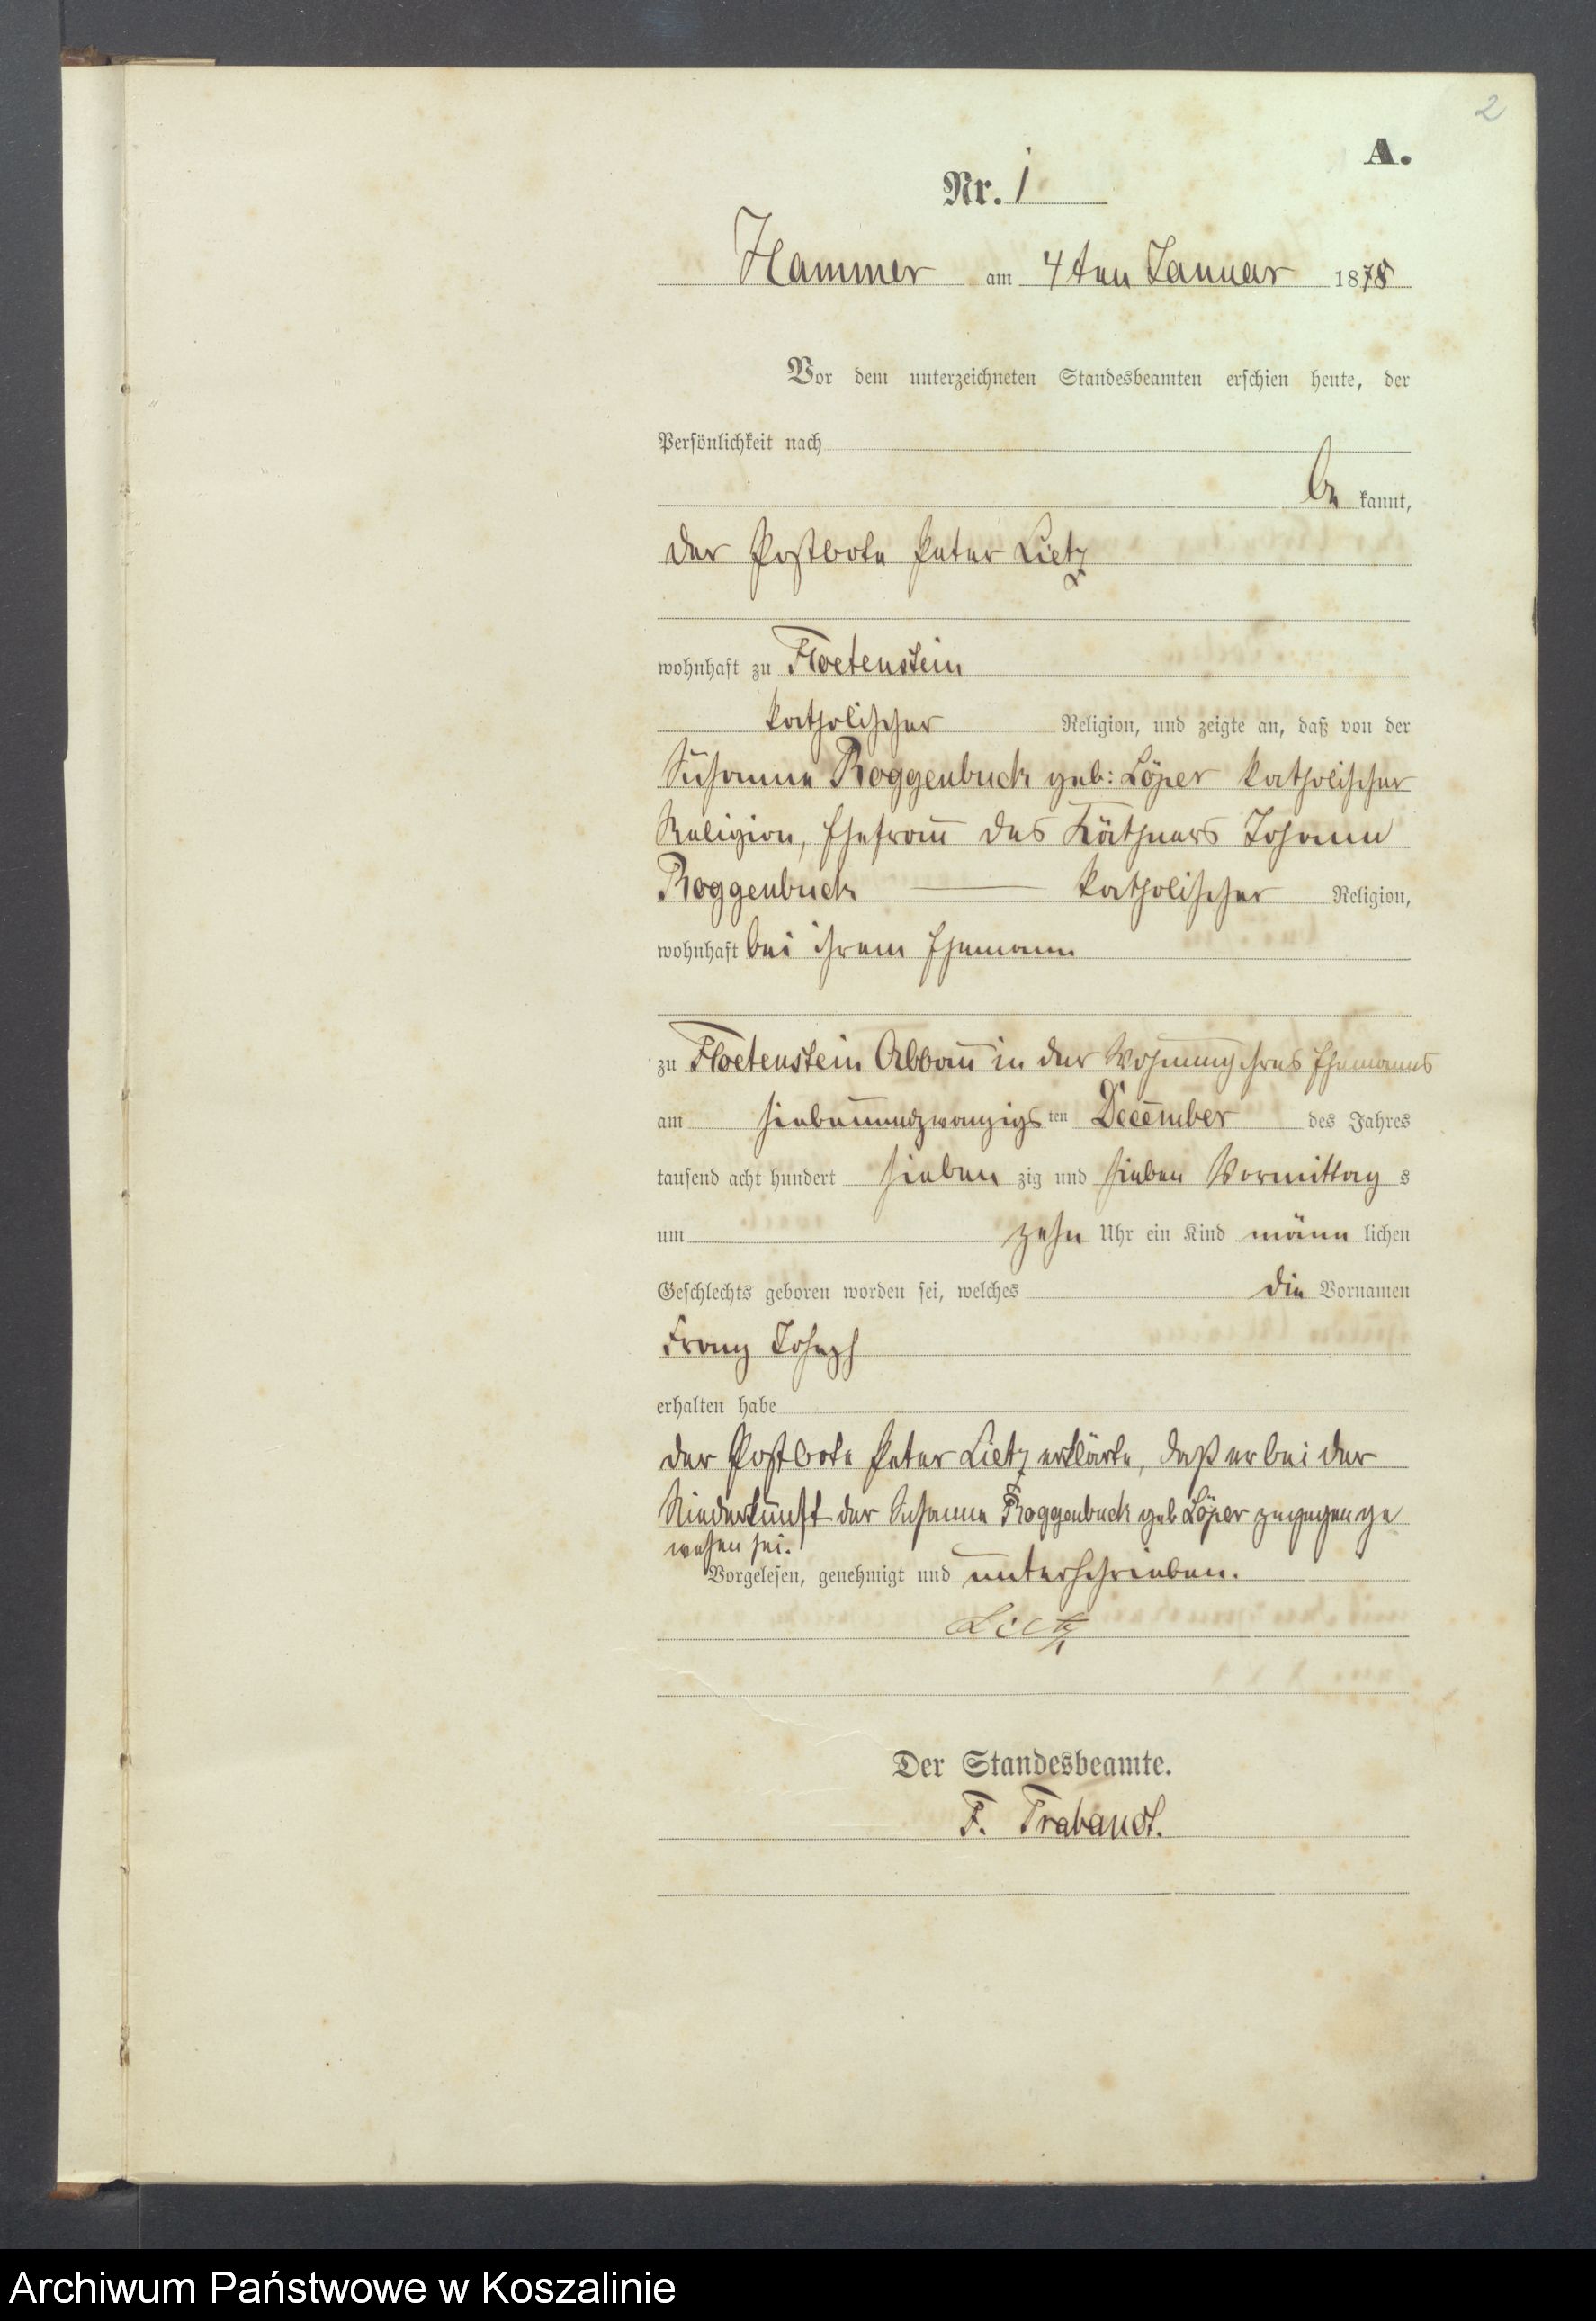 2
A.
Nr. 1
Hammer am 4ten Januar 1878
Vor dem unterzeichneten Standesbeamten erschien heute, der
Persönlichkeit nach
be kannt,
der Postbote Peter Lietz
wohnhaft zu Floetenstein
katholischer Religion, und zeigte an, daß von der
Susanne Roggenbuck geb: Löper katholischer
Religion, Ehefrau des Käthners Johann
Roggenbuck — katholischer Religion,
wohnhaft bei ihrem Ehemann
zu Floetenstein Abbau in der Wohnung ihres Ehemannes
am siebenundzwanzigs ten December des Jahres
tausend acht hundert sieben zig und sieben Vormittag s
um zehn Uhr ein Kind männ lichen
Geschlechts geboren worden sei, welches die Vornamen
Franz Joseph
erhalten habe
der Postbote Peter Lietz erklärte, daß er bei der
Niederkunft der Susanne Roggenbuck geb Löper zugegen ge
wesen sei.
Vorgelesen, genehmigt und unterschrieben.
Lietz
Der Standesbeamte.
F. Trabandt.
Archiwum Państwowe w Koszalinie